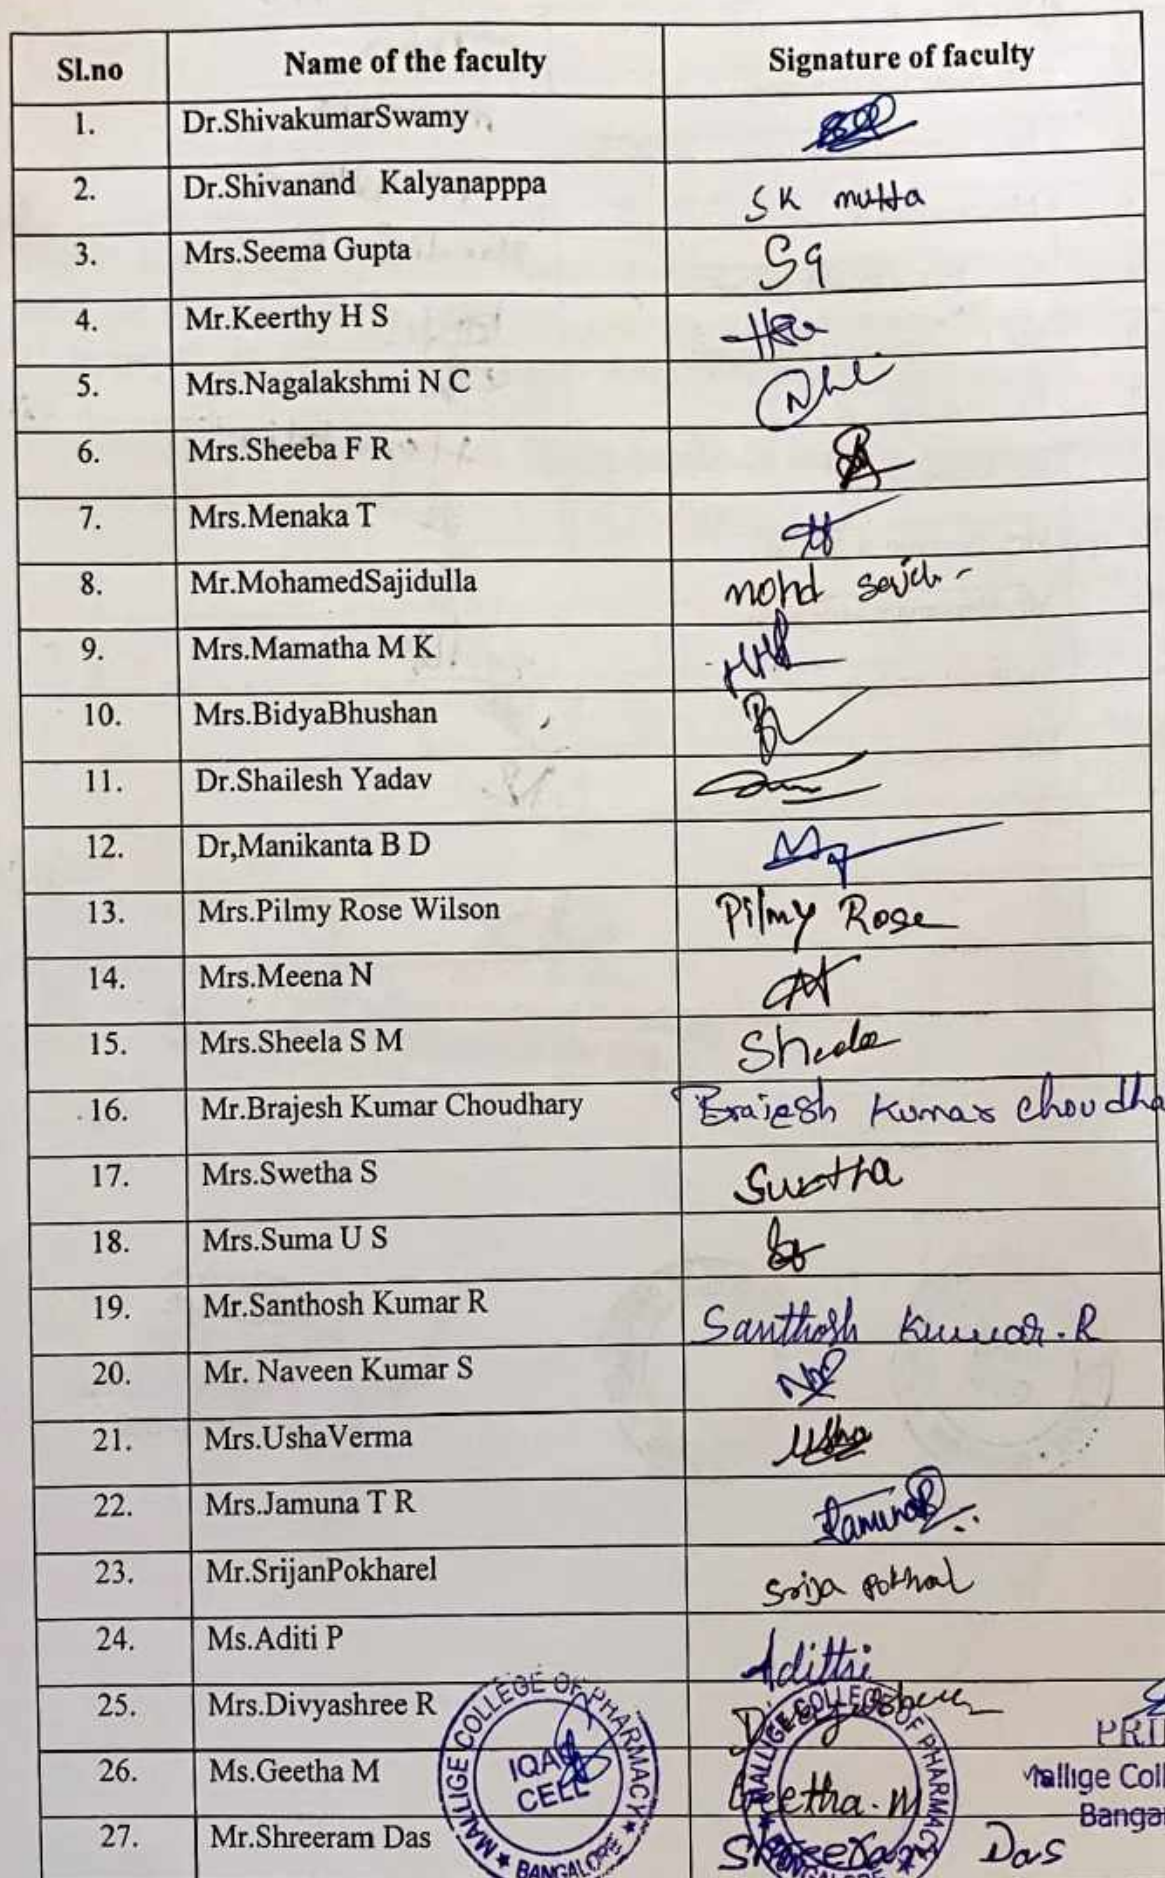 Sl.no Name of the faculty Signature of faculty
1. Dr.ShivakumarSwamy
2. Dr.Shivanand Kalyanapppa SK mutta
3. Mrs.Seema Gupta Sg
4. Mr.Keerthy H S
5. Mrs.Nagalakshmi N C
6. Mrs.Sheeba F R
7. Mrs.Menaka T
8. Mr.MohamedSajidulla mohd
9. Mrs.Mamatha M K
10. Mrs.BidyaBhushan
11. Dr.Shailesh Yadav
12. Dr,Manikanta B D
13. Mrs.Pilmy Rose Wilson Pilmy Rose
14. Mrs.Meena N
15. Mrs.Sheela S M Sheela
16. Mr.Brajesh Kumar Choudhary Brajesh Kumar Choudha
17. Mrs.Swetha S Swetha
18. Mrs.Suma U S
19. Mr.Santhosh Kumar R Santhosh Kumar.R
20. Mr. Naveen Kumar S
21. Mrs.UshaVerma Usha
22. Mrs.Jamuna T R
23. Mr.SrijanPokharel
24. Ms.Aditi P
25. Mrs.Divyashree R
26. Ms.Geetha M Geetha.M
27. Mr.Shreeram Das Shreeram Das
MALLIGE COLLEGE OF PHARMACY
IQAC
CELL
BANGALORE
MALLIGE COLLEGE OF PHARMACY
BANGALORE
PRI
Mallige Coll
Banga